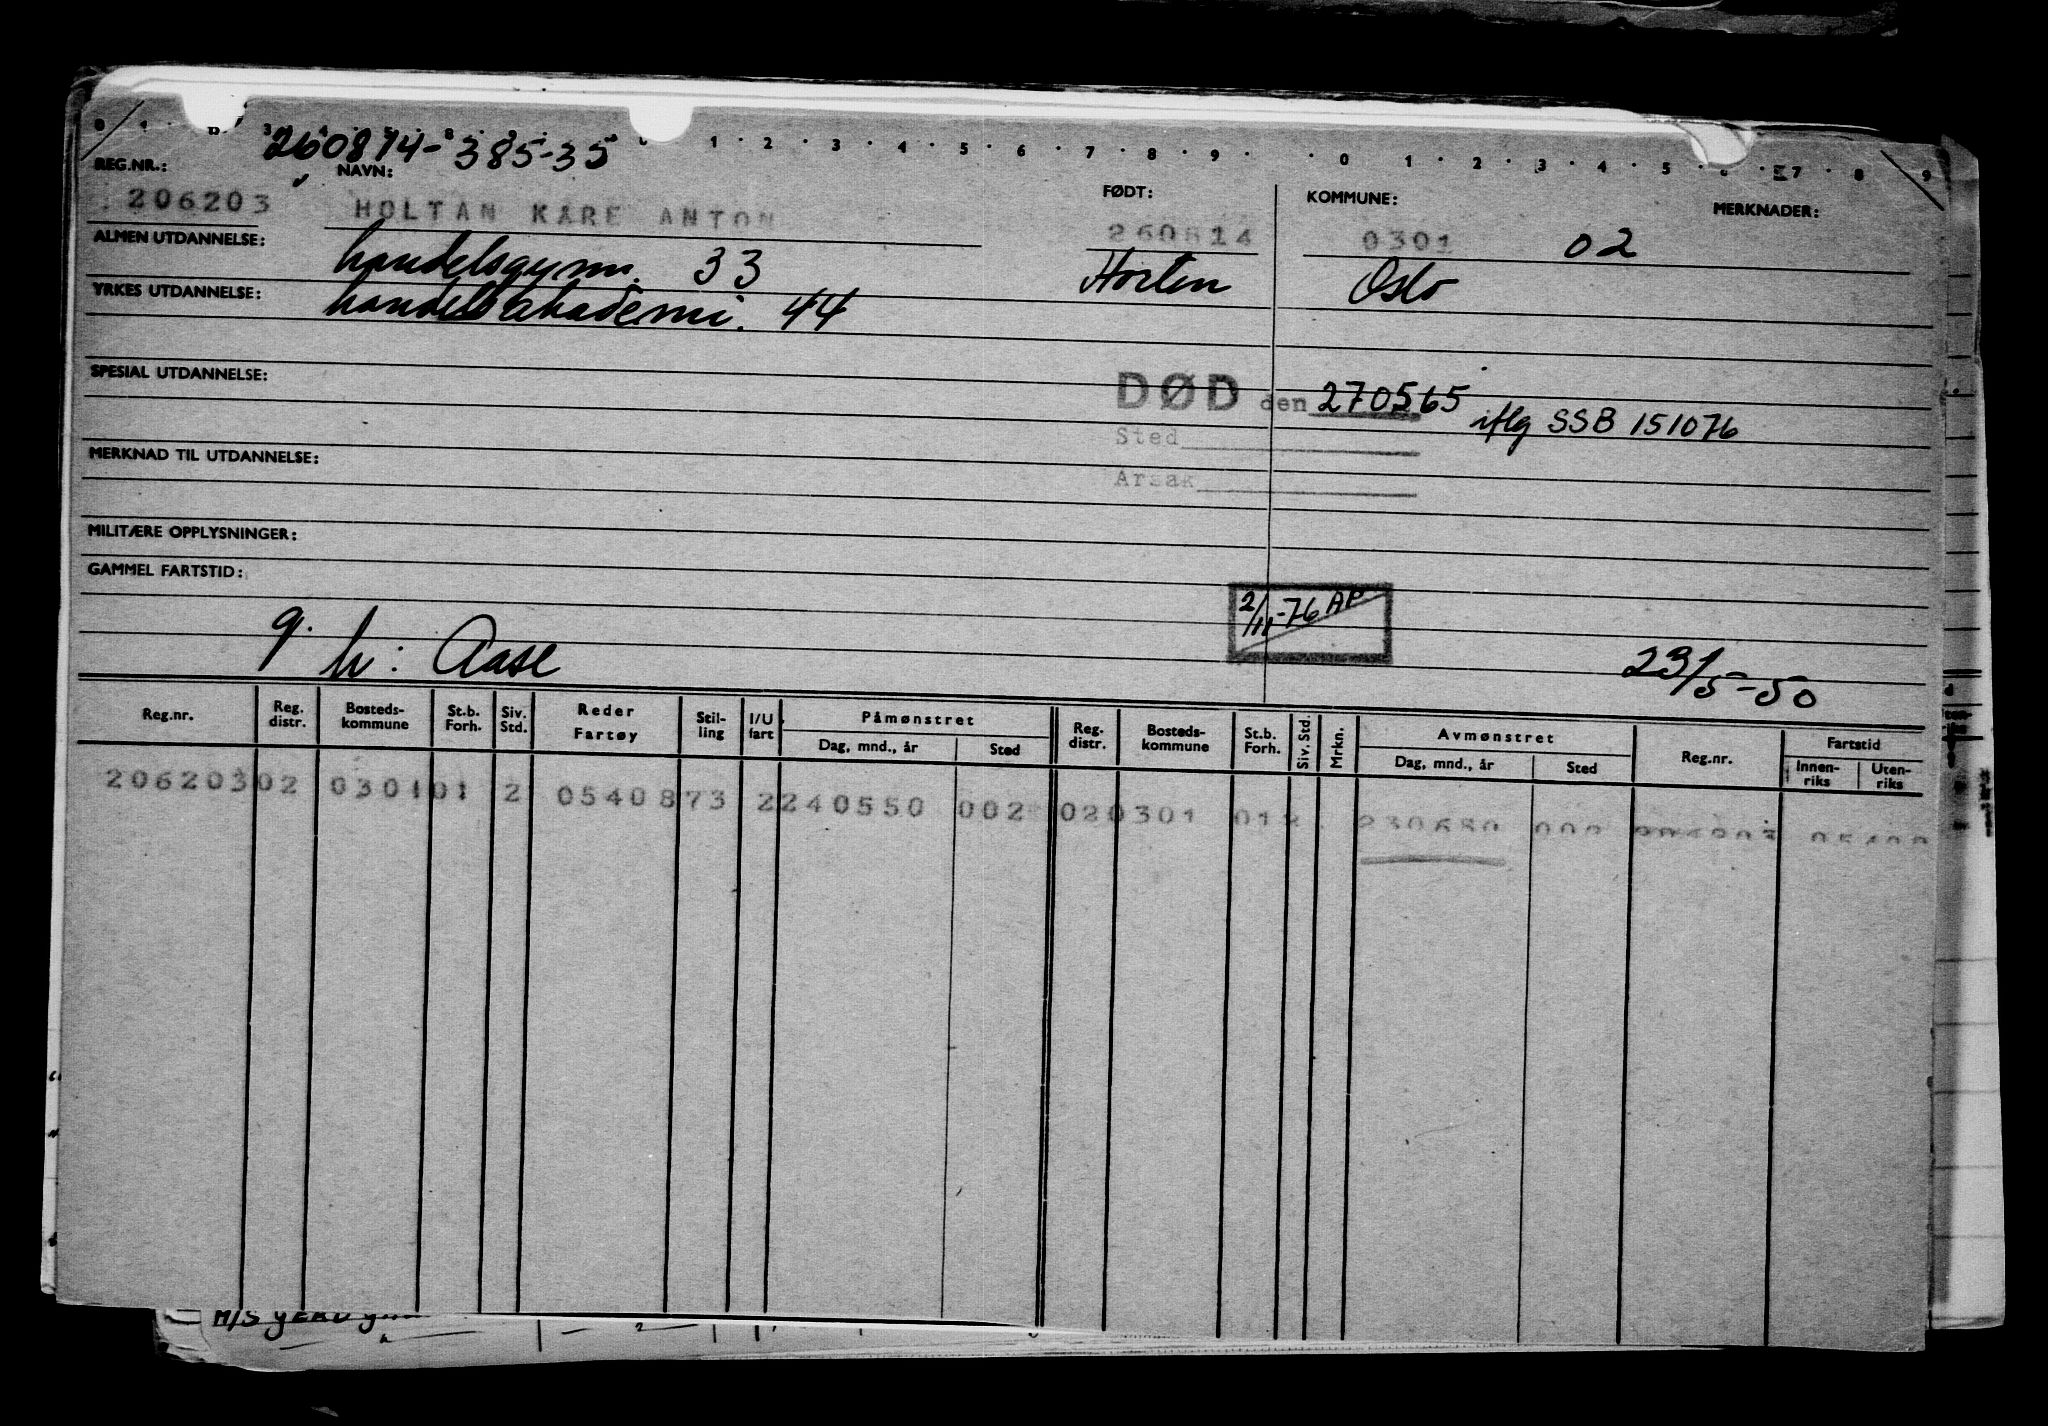 260814-385-35
REG.NR.: NAVN: FØDT: KOMMUNE: MERKNADER:
206203 HOLTAN KARE ANTON 260814 0301 02
ALMEN UTDANNELSE: handelsgymn. 33 Horten Oslo
YRKES UTDANNELSE: handelsakademi. 44
SPESIAL UTDANNELSE:
DØD den 270565 iflg SSB 151076
Sted
Arsak
MERKNAD TIL UTDANNELSE:
MILITÆRE OPPLYSNINGER:
GAMMEL FARTSTID:
2/11-76 AP
g. h: Aase 23/5-50
Reg.nr. Reg. distr. Bosteds-kommune St.b. Forh. Siv. Std. Reder Fartøy Stil-ling I/U fart Påmønstret Dag, mnd., år Sted Reg. distr. Bosteds-kommune St.b. Forh. Siv. Std. Mrkn. Avmønstret Dag, mnd., år Sted Reg.nr. Fartstid Innen-riks Uten-riks
206203 02 0301 01 2 05408 73 2 240550 002 02 0301 01 230650
M/S